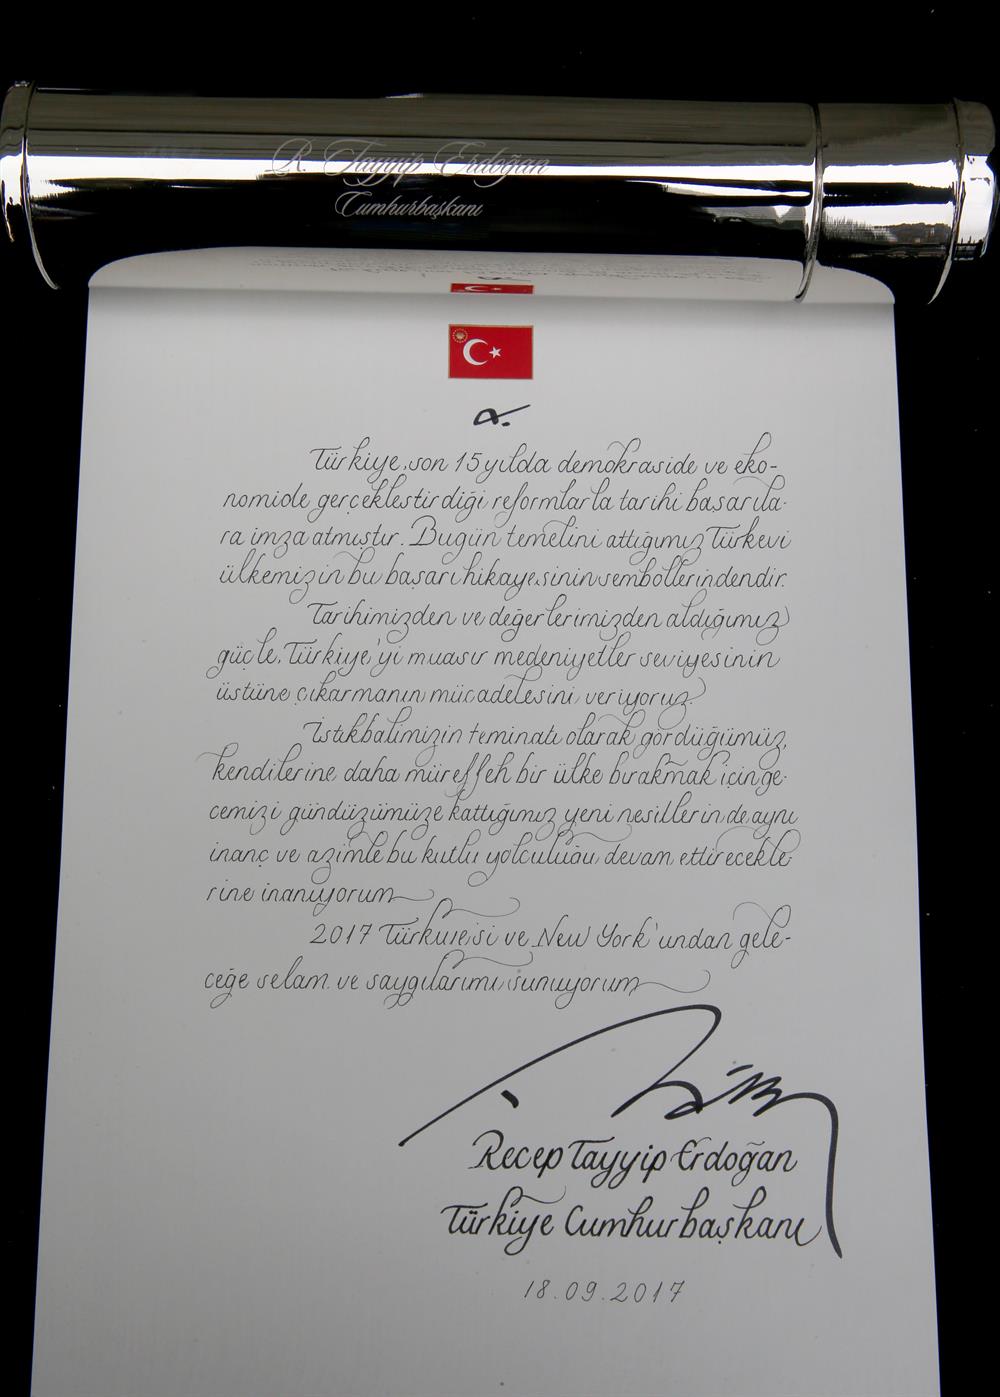 R. Tayyip Erdoğan
Cumhurbaşkanı
Türkiye, son 15 yılda demokraside ve eko-
nomide gerçekleştirdiği reformlarla tarihi başarıla-
ra imza atmıştır. Bugün temelini attığımız Türkevi
ülkemizin bu başarı hikayesinin sembollerindendir.
Tarihimizden ve değerlerimizden aldığımız
güçle, Türkiye'yi muasır medeniyetler seviyesinin
üstüne çıkarmanın mücadelesini veriyoruz.
İstikbalimizin teminatı olarak gördüğümüz,
kendilerine daha müreffeh bir ülke bırakmak için ge-
cemizi gündüzümüze kattığımız yeni nesillerin de aynı
inanç ve azimle bu kutlu yolculuğu devam ettirecekle-
rine inanıyorum
2017 Türkiyesi ve New York'undan gele-
ceğe selam ve saygılarımı sunuyorum
Recep Tayyip Erdoğan
Türkiye Cumhurbaşkanı
18.09.2017